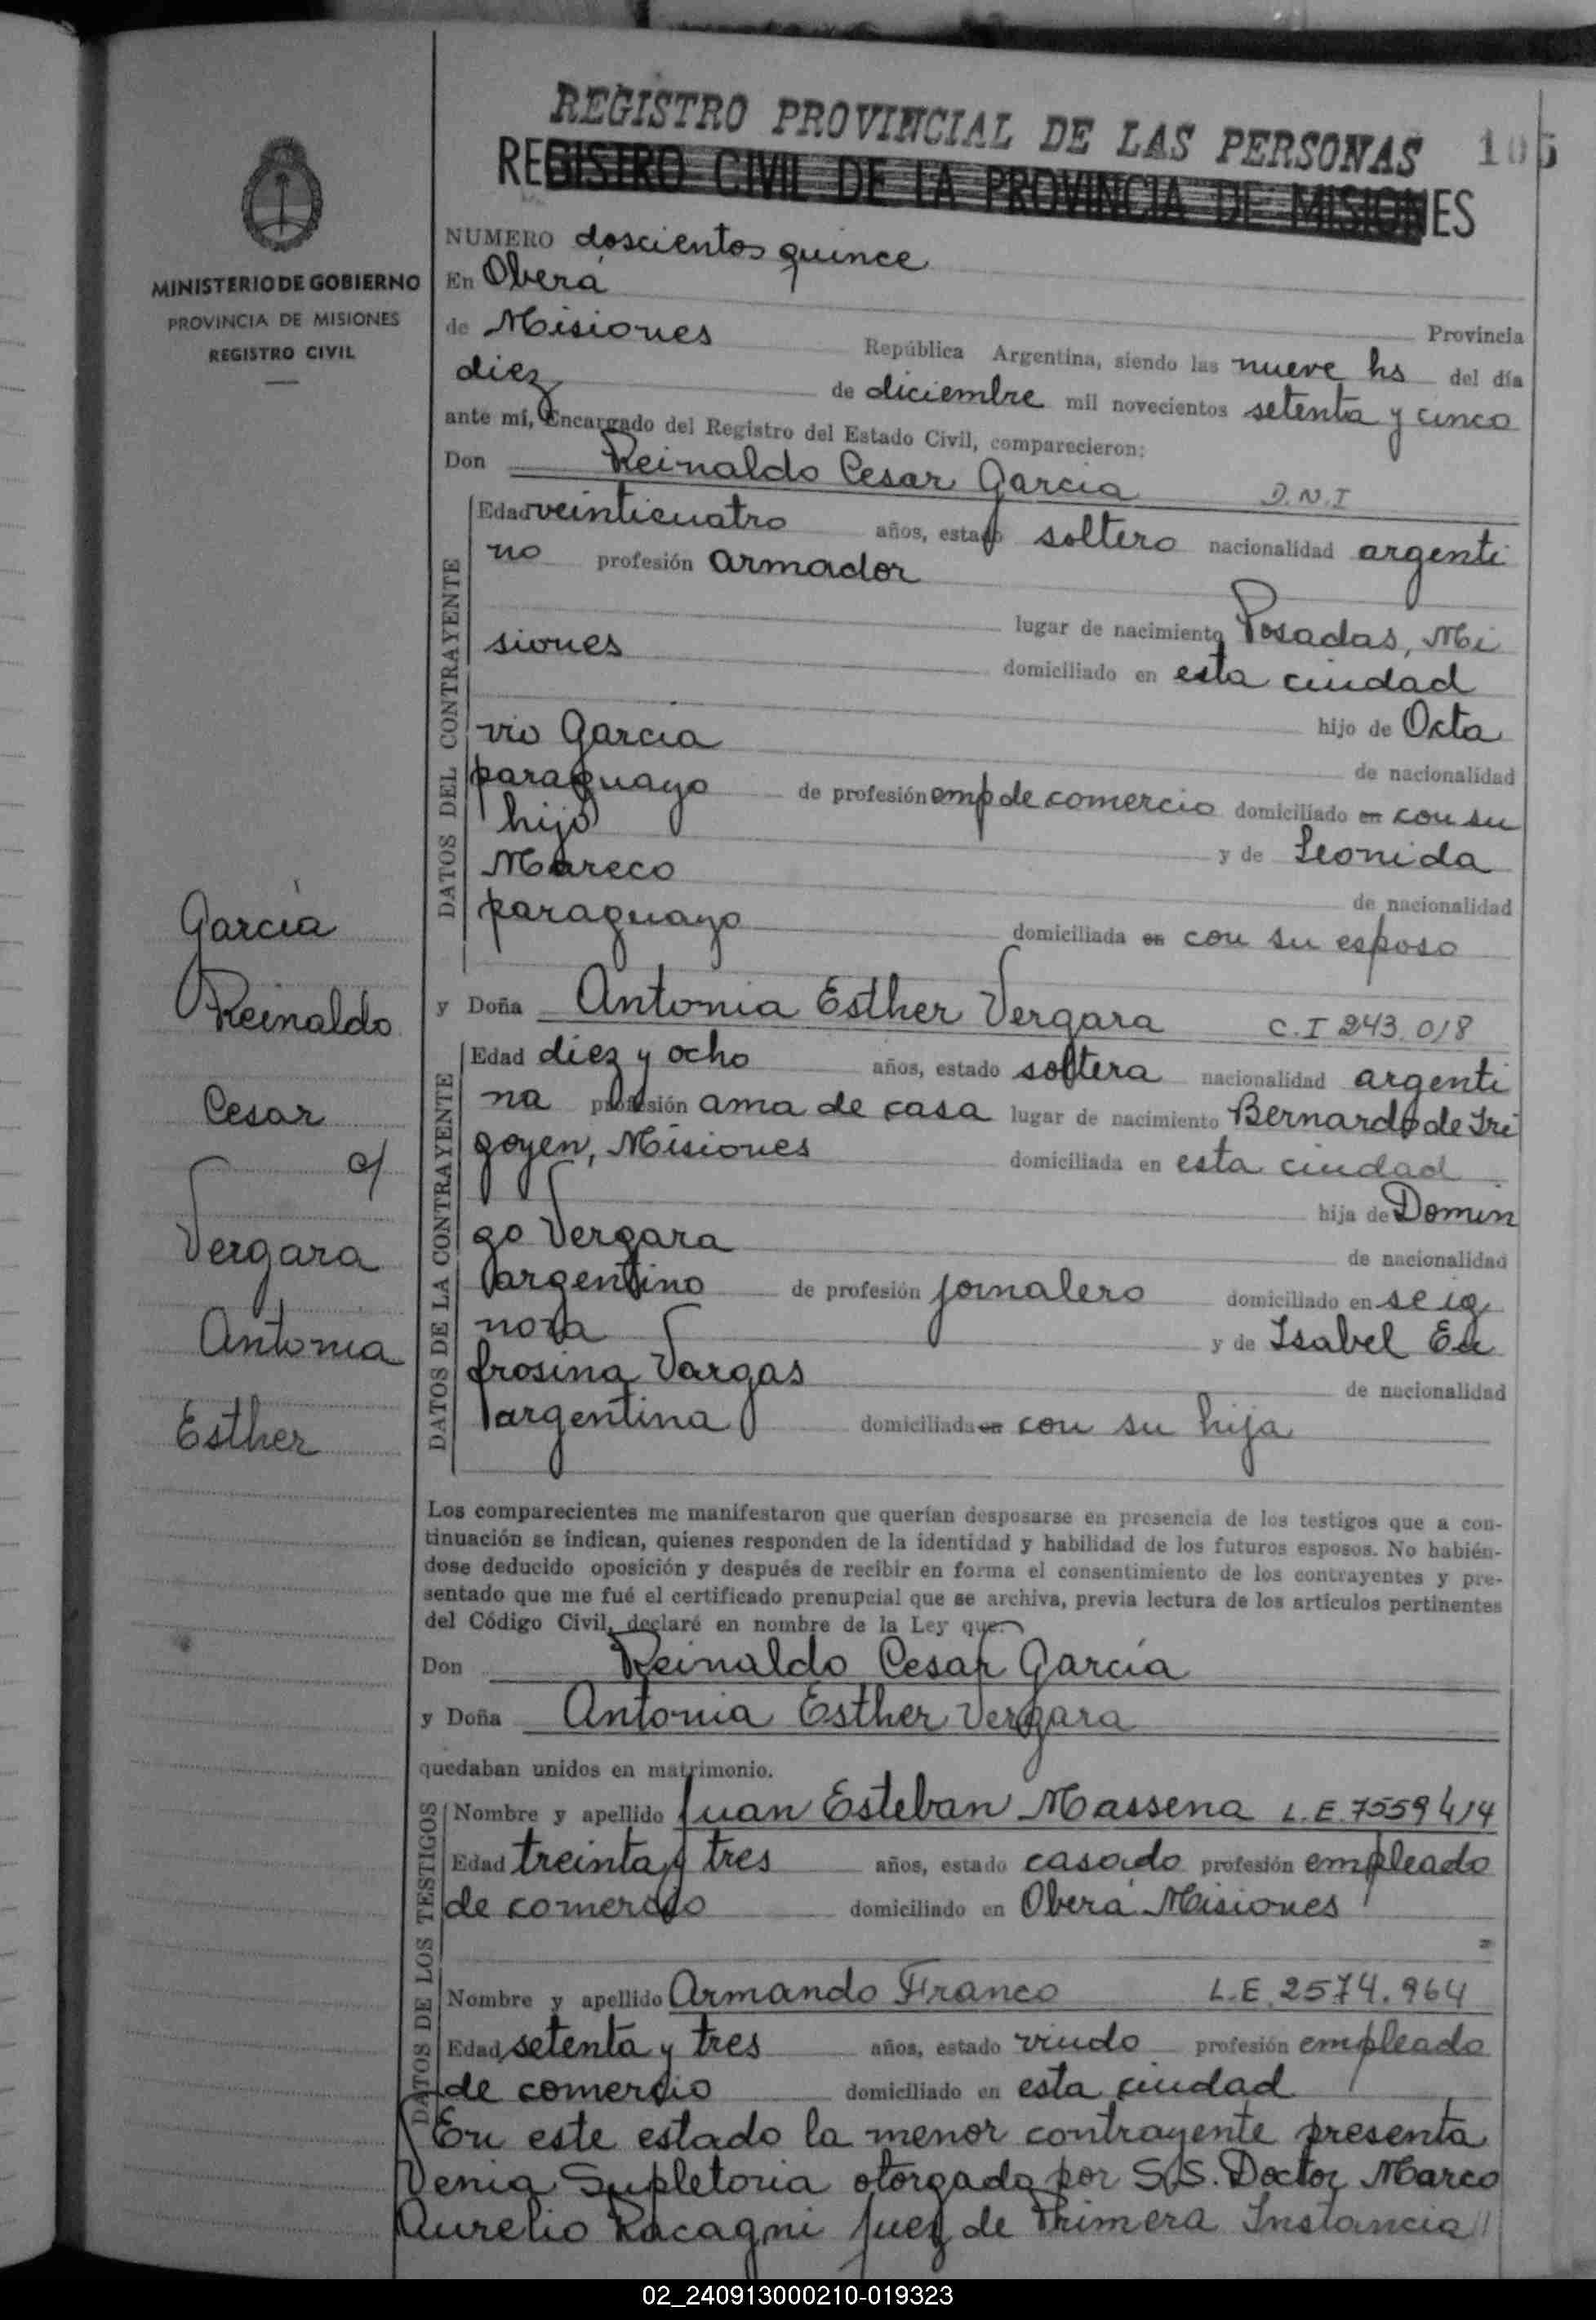 REGISTRO PROVINCIAL DE LAS PERSONAS 105
REGISTRO CIVIL DE LA PROVINCIA DE MISIONES
MINISTERIO DE GOBIERNO
PROVINCIA DE MISIONES
REGISTRO CIVIL
NUMERO doscientos quince
En Oberá Provincia
de Misiones República Argentina, siendo las nueve hs del día
diez de diciembre mil novecientos setenta y cinco
ante mí, Encargado del Registro del Estado Civil, comparecieron:
Don Reinaldo Cesar Garcia D.N.I
DATOS DEL CONTRAYENTE
Edad veinticuatro años, estado soltero nacionalidad argenti
no profesión armador
lugar de nacimiento Posadas, Mi
siones domiciliado en esta ciudad
hijo de Octa
vio Garcia de nacionalidad
paraguayo de profesión emp de comercio domiciliado en con su
hijo y de Leonida
Mareco de nacionalidad
paraguaya domiciliada en con su esposo
y Doña Antonia Esther Vergara C.I 243.018
DATOS DE LA CONTRAYENTE
Edad diez y ocho años, estado soltera nacionalidad argenti
na profesión ama de casa lugar de nacimiento Bernardo de Iri
goyen, Misiones domiciliada en esta ciudad
hija de Domin
go Vergara de nacionalidad
argentino de profesión jornalero domiciliado en se ig
nora y de Isabel Eu
frosina Vargas de nacionalidad
argentina domiciliada en con su hija
García
Reinaldo
Cesar
c/
Vergara
Antonia
Esther
Los comparecientes me manifestaron que querían desposarse en presencia de los testigos que a con-
tinuación se indican, quienes responden de la identidad y habilidad de los futuros esposos. No habién-
dose deducido oposición y después de recibir en forma el consentimiento de los contrayentes y pre-
sentado que me fué el certificado prenupcial que se archiva, previa lectura de los artículos pertinentes
del Código Civil, declaré en nombre de la Ley que:
Don Reinaldo Cesar García
y Doña Antonia Esther Vergara
quedaban unidos en matrimonio.
DATOS DE LOS TESTIGOS
Nombre y apellido Juan Esteban Massena L.E. 7559414
Edad treinta y tres años, estado casado profesión empleado
de comercio domiciliado en Oberá Misiones
Nombre y apellido Armando Franco L.E. 2574.964
Edad setenta y tres años, estado viudo profesión empleado
de comercio domiciliado en esta ciudad
En este estado la menor contrayente presenta
Venia Supletoria otorgada por S.S. Doctor Marco
Aurelio Racagni Juez de Primera Instancia //
02_240913000210-019323